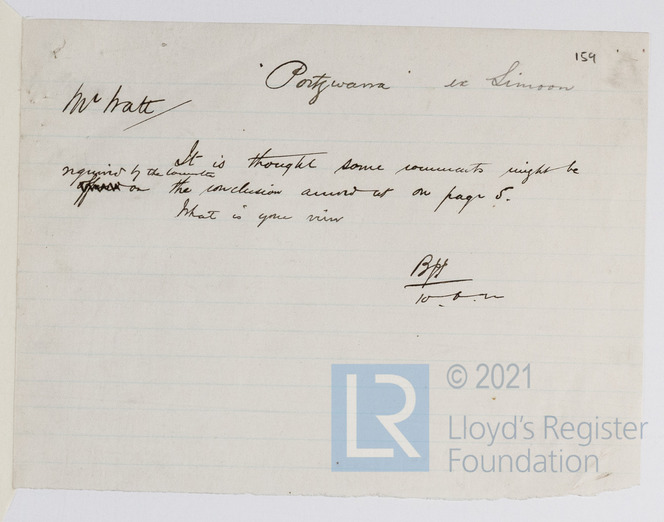 159
"Portywarra" ex Simoon
Mr Watt
It is thought some comments might be
required by the Committee
on the conclusion arrived at on page 5.
What is your view
© 2021
LR
Lloyd's Register
Foundation